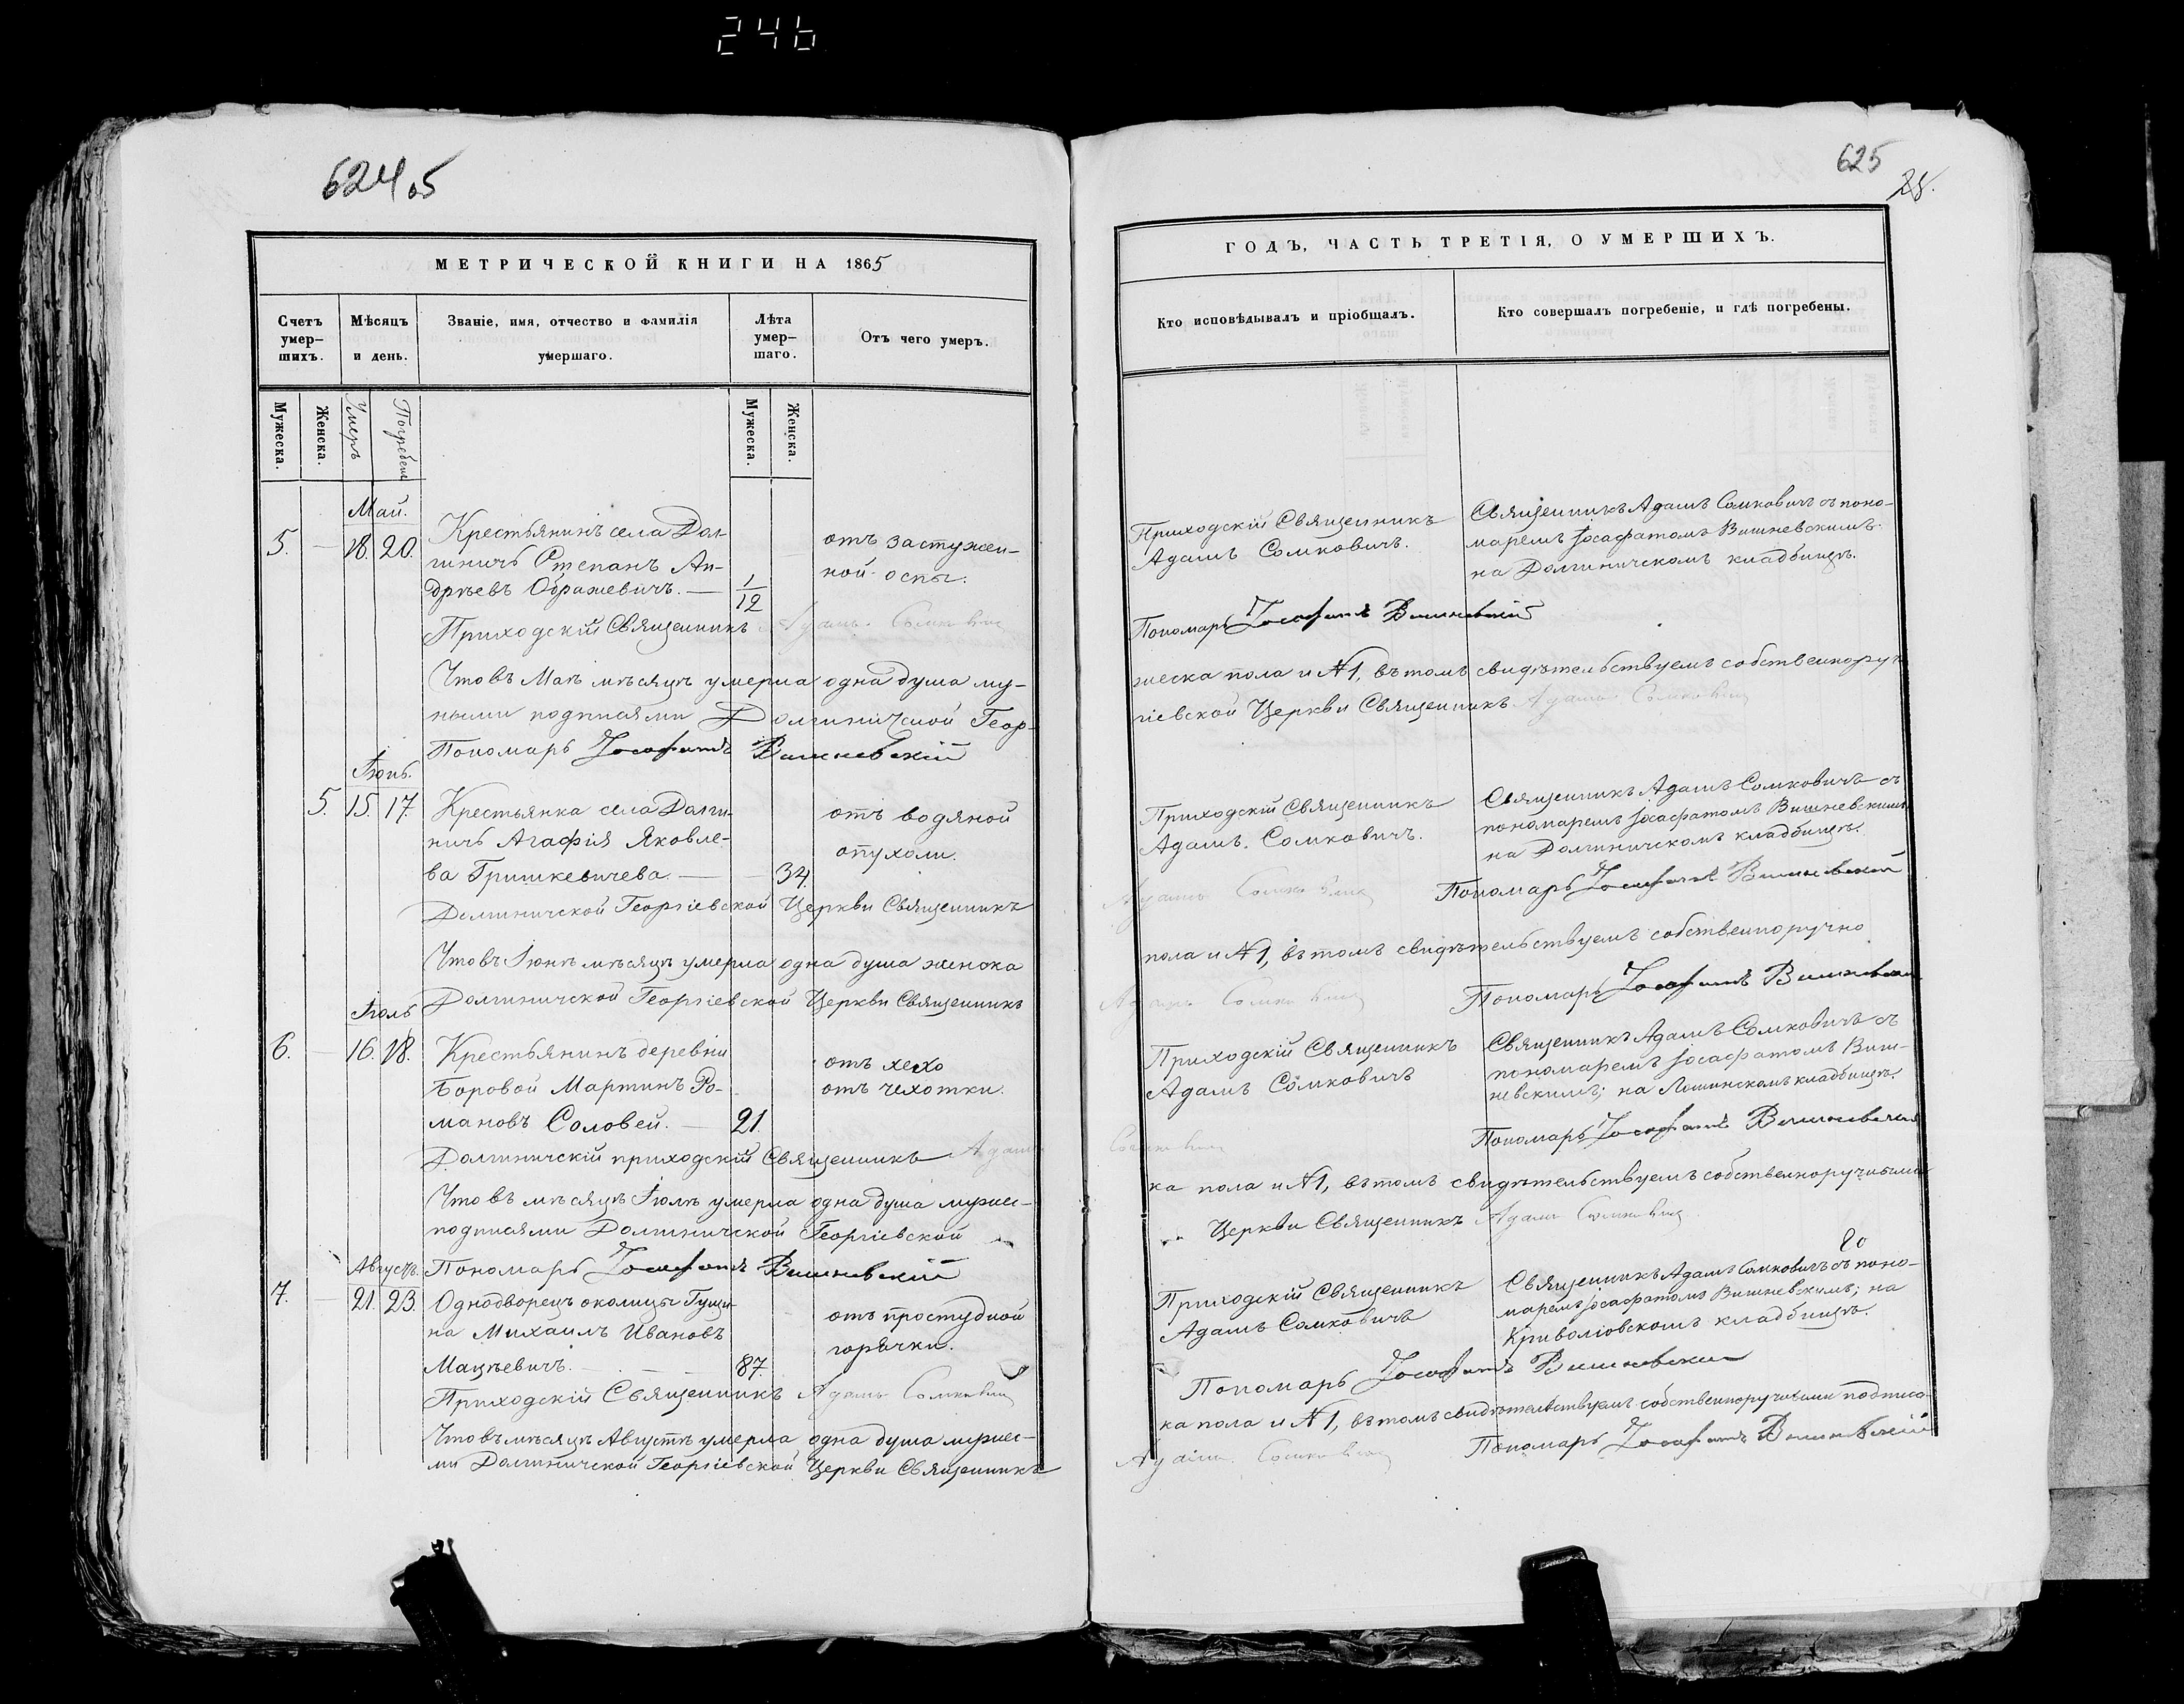 246
624 об
МЕТРИЧЕСКОЙ КНИГИ НА 1865
Счетъ умер–шихъ.
Мѣсяцъ и день.
Званіе, имя, отчество и фамилія умершаго.
Лѣта умер–шаго.
Отъ чего умеръ.
Мужеска.
Женска.
Умеръ
Погребенъ
Мужеска.
Женска.
Май.
5. — 18. 20. Крестьянинъ села Дол-
гиничъ Степанъ Ан-
дреевъ Ображевичъ. — 1/12
отъ застужен-
ной оспы.
Приходскій Священникъ Адамъ Сомковичъ
Что въ Маѣ мѣсяцѣ умерла одна душа му-
ными подписями Долгиничской Геор-
Пономарь Іосафатъ Вишневскій
Іюнь.
5. 15. 17. Крестьянка села Долги-
ничъ Агафія Яковле-
ва Гришкевичева. — 34.
отъ водяной
опухоли.
Долгиничской Георгіевской Церкви Священникъ
Что въ Іюнѣ мѣсяцѣ умерла одна душа женска
Долгиничской Георгіевской Церкви Священникъ
Іюль
6. — 16. 18. Крестьянинъ деревни
Боровой Мартинъ Ро-
мановъ Соловей. — 21.
отъ
отъ чехотки.
Долгиничскій приходскій Священникъ Адамъ
Что въ мѣсяцѣ Іюлѣ умерла одна душа мужес-
подписями Долгиничской Георгіевской
Августъ. Пономарь Іосафатъ Вишневскій
7. — 21. 23. Однодворецъ околицы Гущи-
на Михаилъ Ивановъ
Мацѣевичъ. — 87.
отъ простудной
горячки.
Приходскій Священникъ Адамъ Сомковичъ
Что въ мѣсяцѣ Августѣ умерла одна душа мужес-
ми Долгиничской Георгіевской Церкви Священникъ
625
28.
ГОДЪ, ЧАСТЬ ТРЕТІЯ, О УМЕРШИХЪ.
Кто исповѣдывалъ и пріобщалъ.
Кто совершалъ погребеніе, и гдѣ погребены.
Приходскій Священникъ
Адамъ Сомковичъ.
Священникъ Адамъ Сомковичъ съ поно-
маремъ Іосафатомъ Вишневскимъ
на Долгиничскомъ кладбищѣ.
Пономарь Іосафатъ Вишневскій
жеска пола и №1, въ томъ свидѣтельствуемъ собственноруч-
гіевской Церкви Священникъ Адамъ Сомковичъ
Приходскій Священникъ
Адамъ Сомковичъ.
Священникъ Адамъ Сомковичъ съ
пономаремъ Іосафатомъ Вишневскимъ
на Долгиничскомъ кладбищѣ.
Адамъ Сомковичъ Пономарь Іосафатъ Вишневскій
пола и №1, въ томъ свидѣтельствуемъ собственноручно
Адамъ Сомковичъ Пономарь Іосафатъ Вишневскій
Приходскій Священникъ
Адамъ Сомковичъ
Священникъ Адамъ Сомковичъ съ
пономаремъ Іосафатомъ Виш-
невскимъ; на кладбищѣ.
Сомковичъ Пономарь Іосафатъ Вишневскій
ка пола и №1, въ томъ свидѣтельствуемъ собственноручными
Церкви Священникъ Адамъ Сомковичъ
Приходскій Священникъ
Адамъ Сомковичъ
Священникъ Адамъ Сомковичъ съ поно-
маремъ Іосафатомъ Вишневскимъ; на
кладбищѣ.
Пономарь Іосафатъ Вишневскій
ка пола и №1, въ томъ свидѣтельствуемъ собственноручными подписа-
Адамъ Сомковичъ Пономарь Іосафатъ Вишневскій